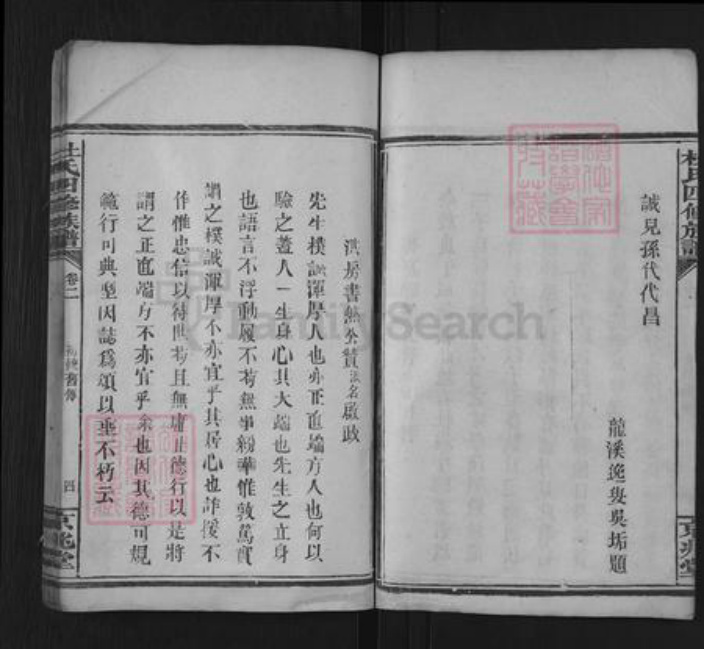 杜氏四修族譜
京兆堂
誠見孫代代昌
龍溪逸叟吳垢題
洪房書無公贊派名啟政
先生樸誠渾厚人也亦正直端方人也何以
驗之蓋人一生身心其大端也先生之立身
也語言不浮動履不苟無事紛華惟敦篤實
謂之樸誠渾厚不亦宜乎其居心也詐援不
作惟忠信以待世苟且無庸止德行以是將
謂之正直端方不亦宜乎余也因其德可規
範行可典型因誌為頌以垂不朽云
杜氏四修族譜
卷二
舊傳
四
京兆堂
FamilySearch